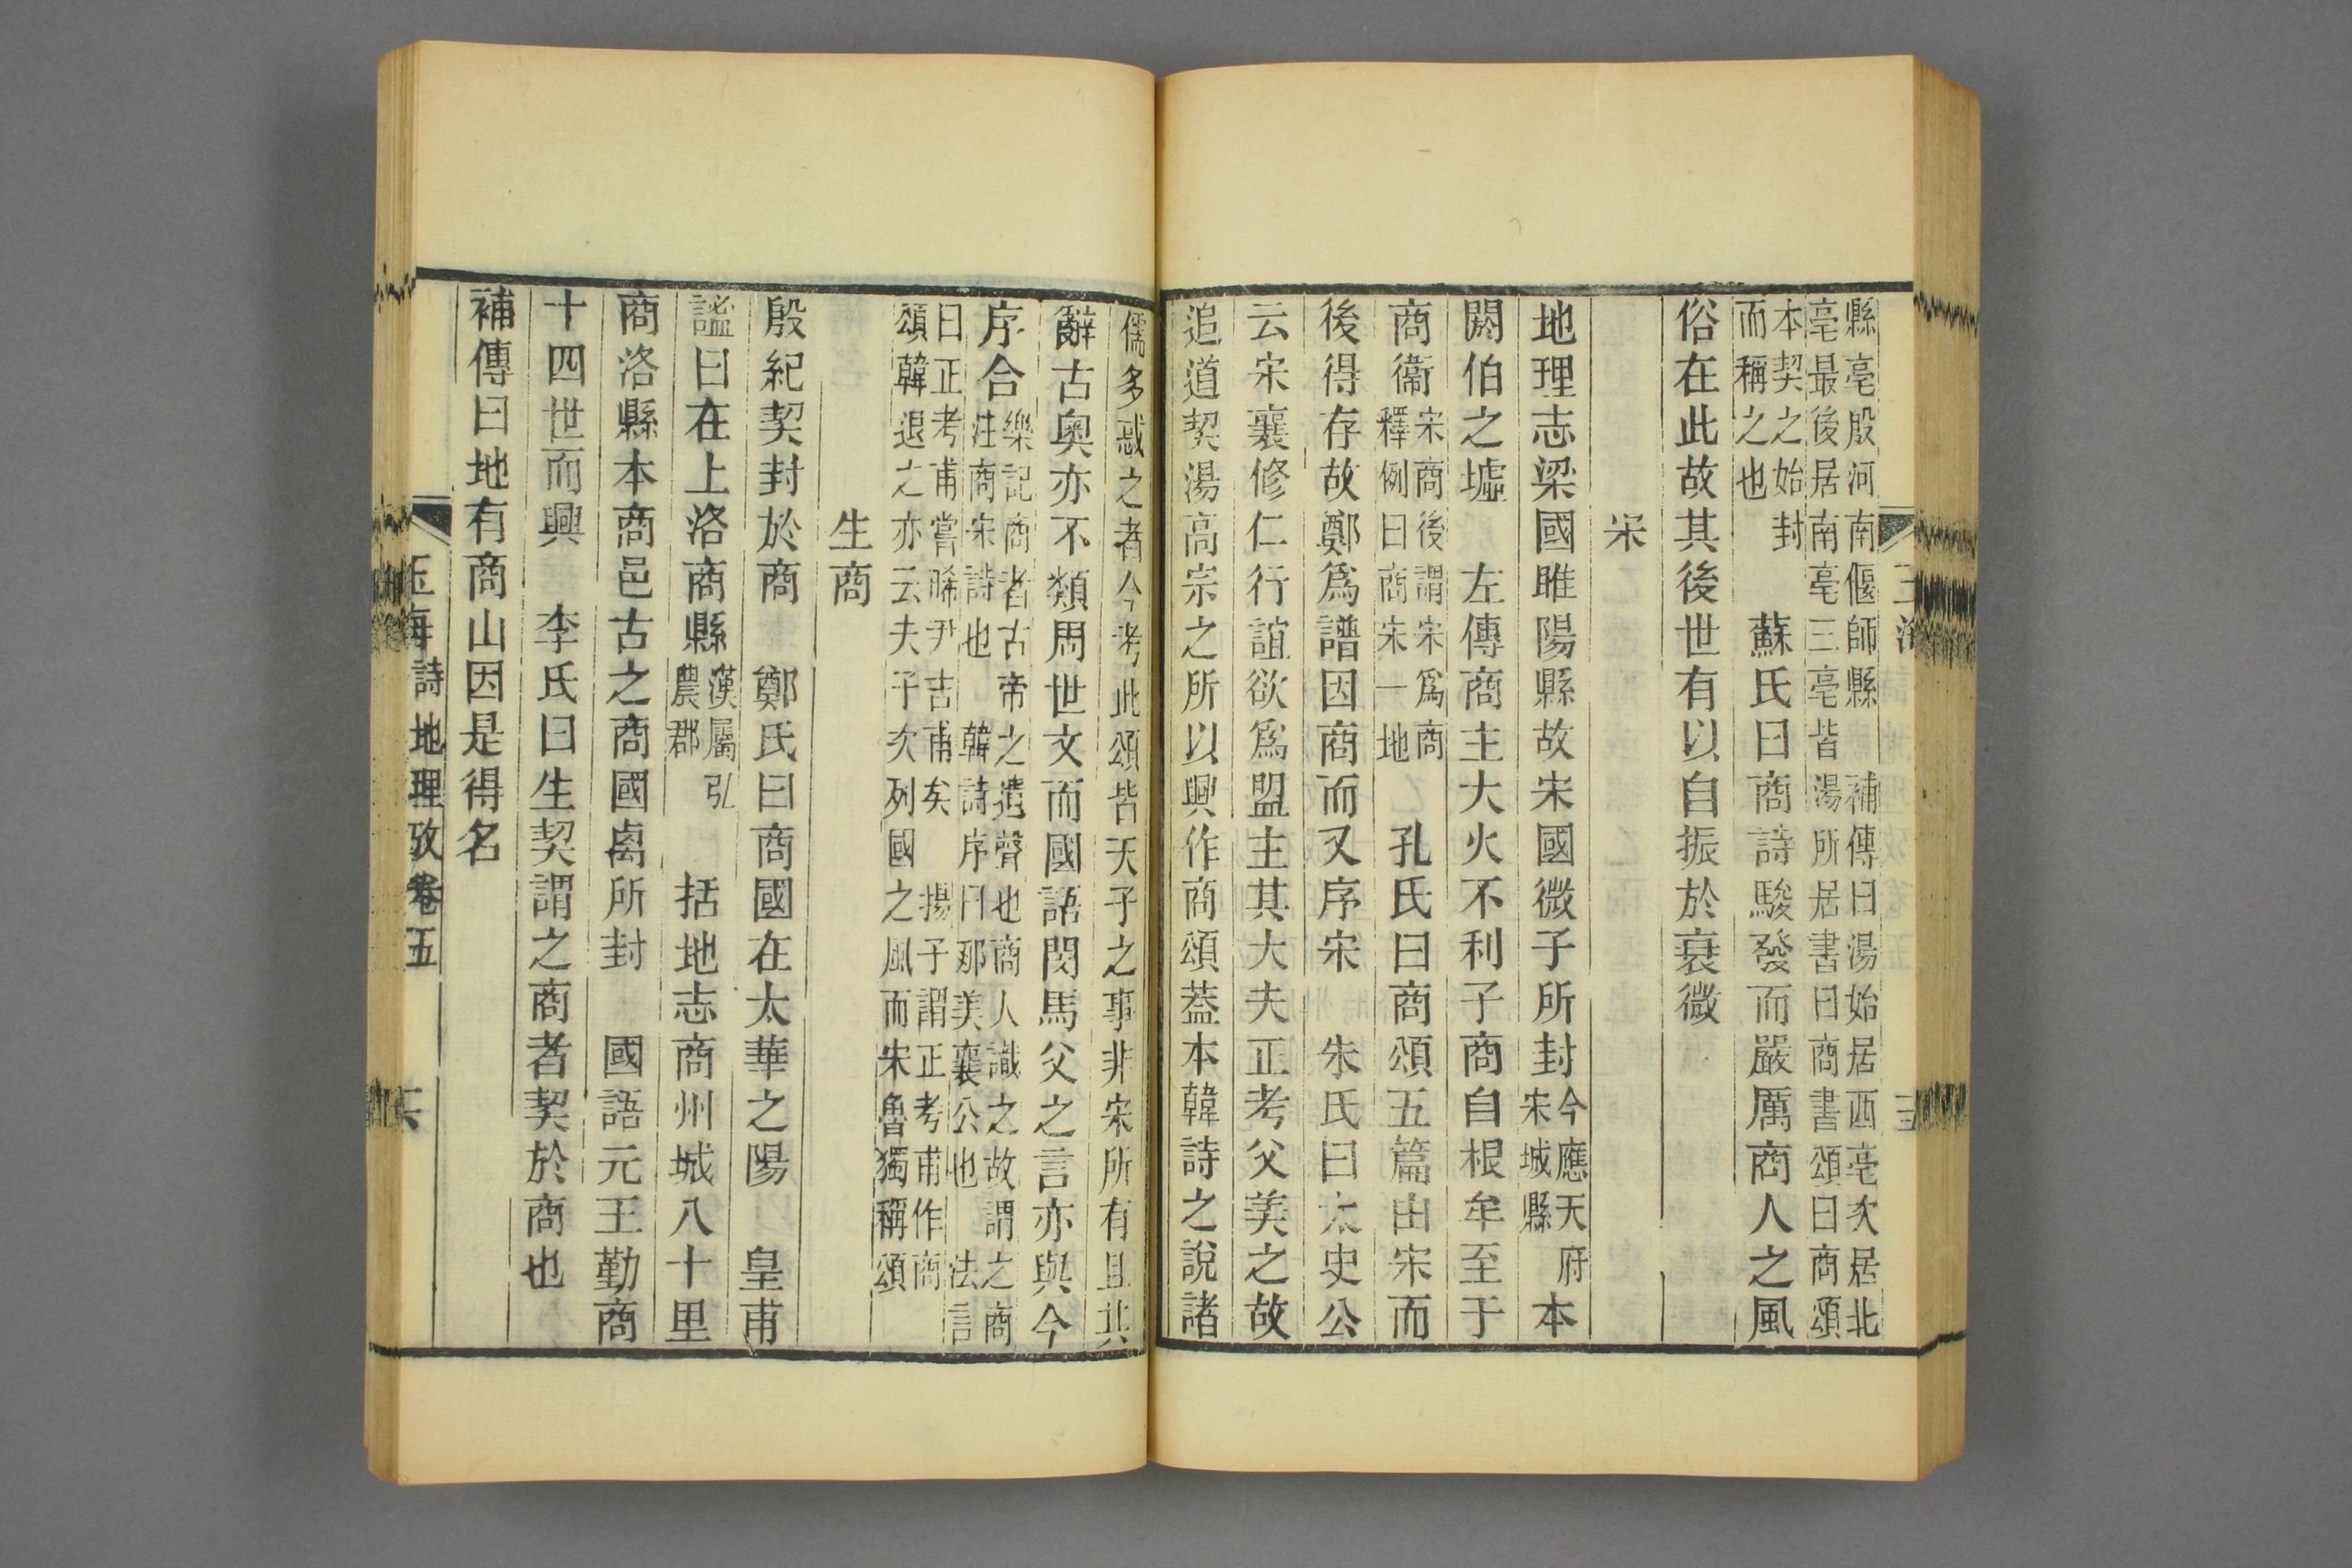 縣亳殷河南偃師縣　補傳曰湯始居西亳次居北
亳最後居南亳三亳皆湯所居書曰商書頌曰商頌
本契之始封
而稱之也
蘇氏曰商詩駿發而嚴厲商人之風
俗在此故其後世有以自振於衰微
宋
地理志梁國睢陽縣故宋國微子所封
今應天府
宋城縣
本
閼伯之墟　左傳商主大火不利子商自根牟至于
商衞
宋商後謂宋爲商
釋例曰商宋一地
孔氏曰商頌五篇由宋而
後得存故鄭爲譜因商而又序宋　朱氏曰太史公
云宋襄修仁行誼欲爲盟主其大夫正考父美之故
追道契湯高宗之所以興作商頌葢本韓詩之說諸
儒多惑之者今考此頌皆天子之事非宋所有且其
辭古奧亦不類周世文而國語閔馬父之言亦與今
序合
樂記商者古帝之遺聲也商人識之故謂之商
注商宋詩也　韓詩序曰那美襄公也　法言
曰正考甫嘗睎尹吉甫矣　揚子謂正考甫作商
頌韓退之亦云夫子次列國之風而宋魯獨稱頌
生商
殷紀契封於商　鄭氏曰商國在太華之陽　皇甫
謐曰在上洛商縣
漢屬弘
農郡
括地志商州城八十里
商洛縣本商邑古之商國卨所封　國語元王勤商
十四世而興　李氏曰生契謂之商者契於商也
補傳曰地有商山因是得名
玉海　詩地理攷卷五